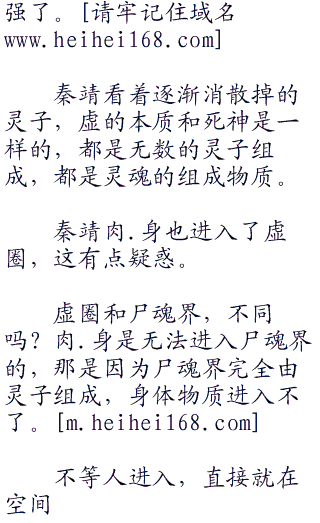 强了。[请牢记住域名
www.heihei168.com]
秦靖看着逐渐消散掉的
灵子，虚的本质和死神是一
样的，都是无数的灵子组
成，都是灵魂的组成物质。
秦靖肉.身也进入了虚
圈，这有点疑惑。
虚圈和尸魂界，不同
吗？肉.身是无法进入尸魂界
的，那是因为尸魂界完全由
灵子组成，身体物质进入不
了。[m.heihei168.com]
不等人进入，直接就在
空间